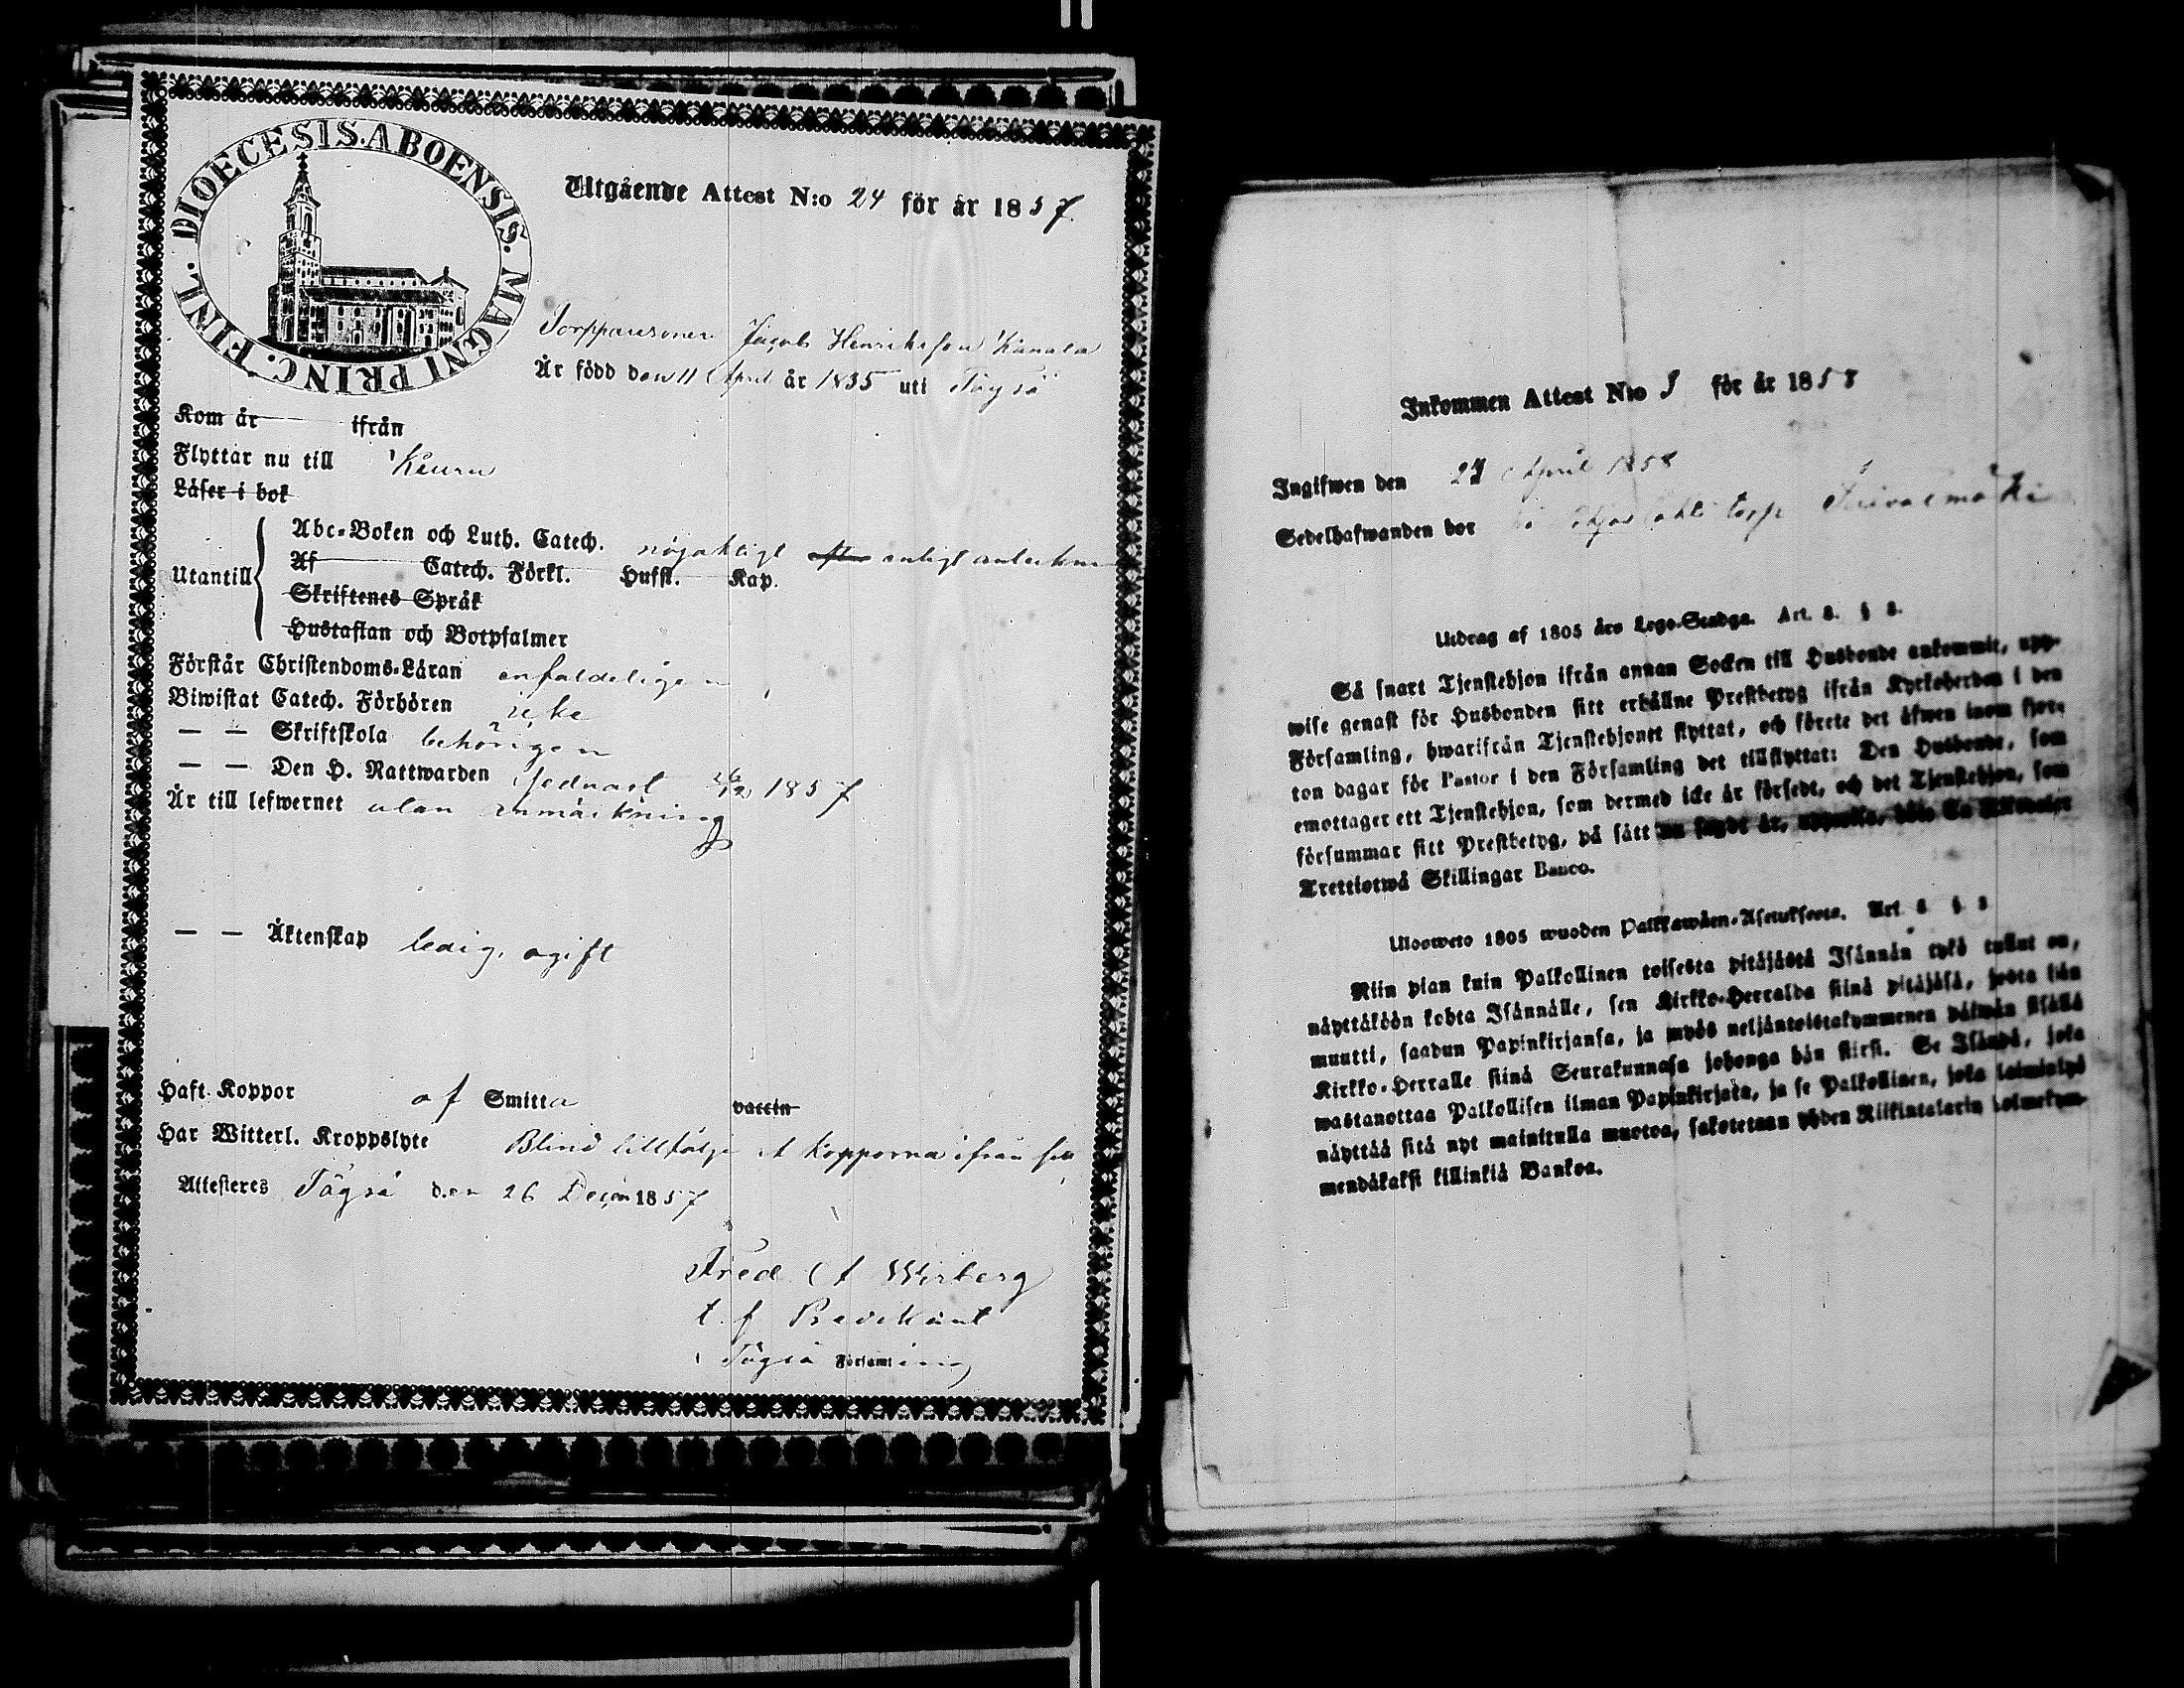 DIOECESIS. ABOENSIS. MAGNI PRINC. FINL.
Utgående Attest N:o 24 för år 1857.
Torpparesonen Jacob Henriksson
Är född den 11 April år 1835 uti Töysä
Kom år ifrån
Flyttar nu till Keuru
Läser i bok
Utantill
Abc-Boken och Luth. Catech. nöjaktigt
Af Catech. Förkl. Husfl. Kap.
Skriftenes Språk
Hustaflan och Botpsalmer
Förstår Christendoms-Läran enfaldeligen
Biwistat Catech. Förhören icke
— — Skriftskola behörigen
— — Den H. Nattwarden sednast 1857
Är till lefwernet utan anmärkning
— — Äktenskap ledig, ogift
Haft Koppor af Smitta vaccin
Har Witterl. Kroppslyte Blind tillfölje af Kopporna ifrån
Attesteras Töysä den 26 Decem 1857
Fred. A Wirberg
t. f. Predikant
i Töysä Församling
Inkommen Attest N:o 3 för år 1858
Ingifwen den 27 April 1858
Sedelhafwanden bor torp
Utdrag af 1805 års Lego-Stadga. Art. 8. § 8.
Så snart Tjenstehjon ifrån annan Socken till Husbonde ankommit, upp-
wise genast för Husbonden sitt erhållne Prestbetyg ifrån Kyrkoherden i den
Församling, hwarifrån Tjenstehjonet flyttat, och förete det äfwen inom fjor-
ton dagar för Pastor i den Församling det tillflyttat: Den Husbonde, som
emottager ett Tjenstehjon, som dermed icke är försedt, och det Tjenstehjon, som
försummar sitt Prestbetyg, på sätt nu sagdt är, uppwisa, böte En Riksdaler
Trettiotwå Skillingar Banco.
Ulosweto 1805 wuoden Palkkawäen-Asetuksesta. Art 8 § 8
Niin pian kuin Palkollinen toisesta pitäjästä Isännän tykö tullut on,
näyttäköön kohta Isännälle, sen Kirkko-Herralda siinä pitäjäsä, josta hän
muutti, saadun Papinkirjansa, ja myös neljäntoistakymmenen päiwän sisällä
Kirkko-Herralle siinä Seurakunnasa johonga hän siirsi. Se Isändä, joka
wastanottaa Palkollisen ilman Papinkirjata, ja se Palkollinen, joka laiminlyö
näyttää sitä nyt mainitulla muotoa, sakotetaan yhden Riikintalarin kolmekym-
mendäkaksi killinkiä Bankoa.